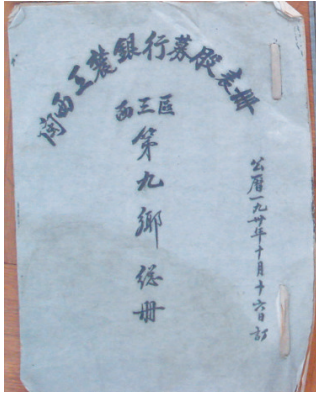 閩西工農銀行募股表册
西三區
第九鄉總册
公曆一九卅年十月十六日訂